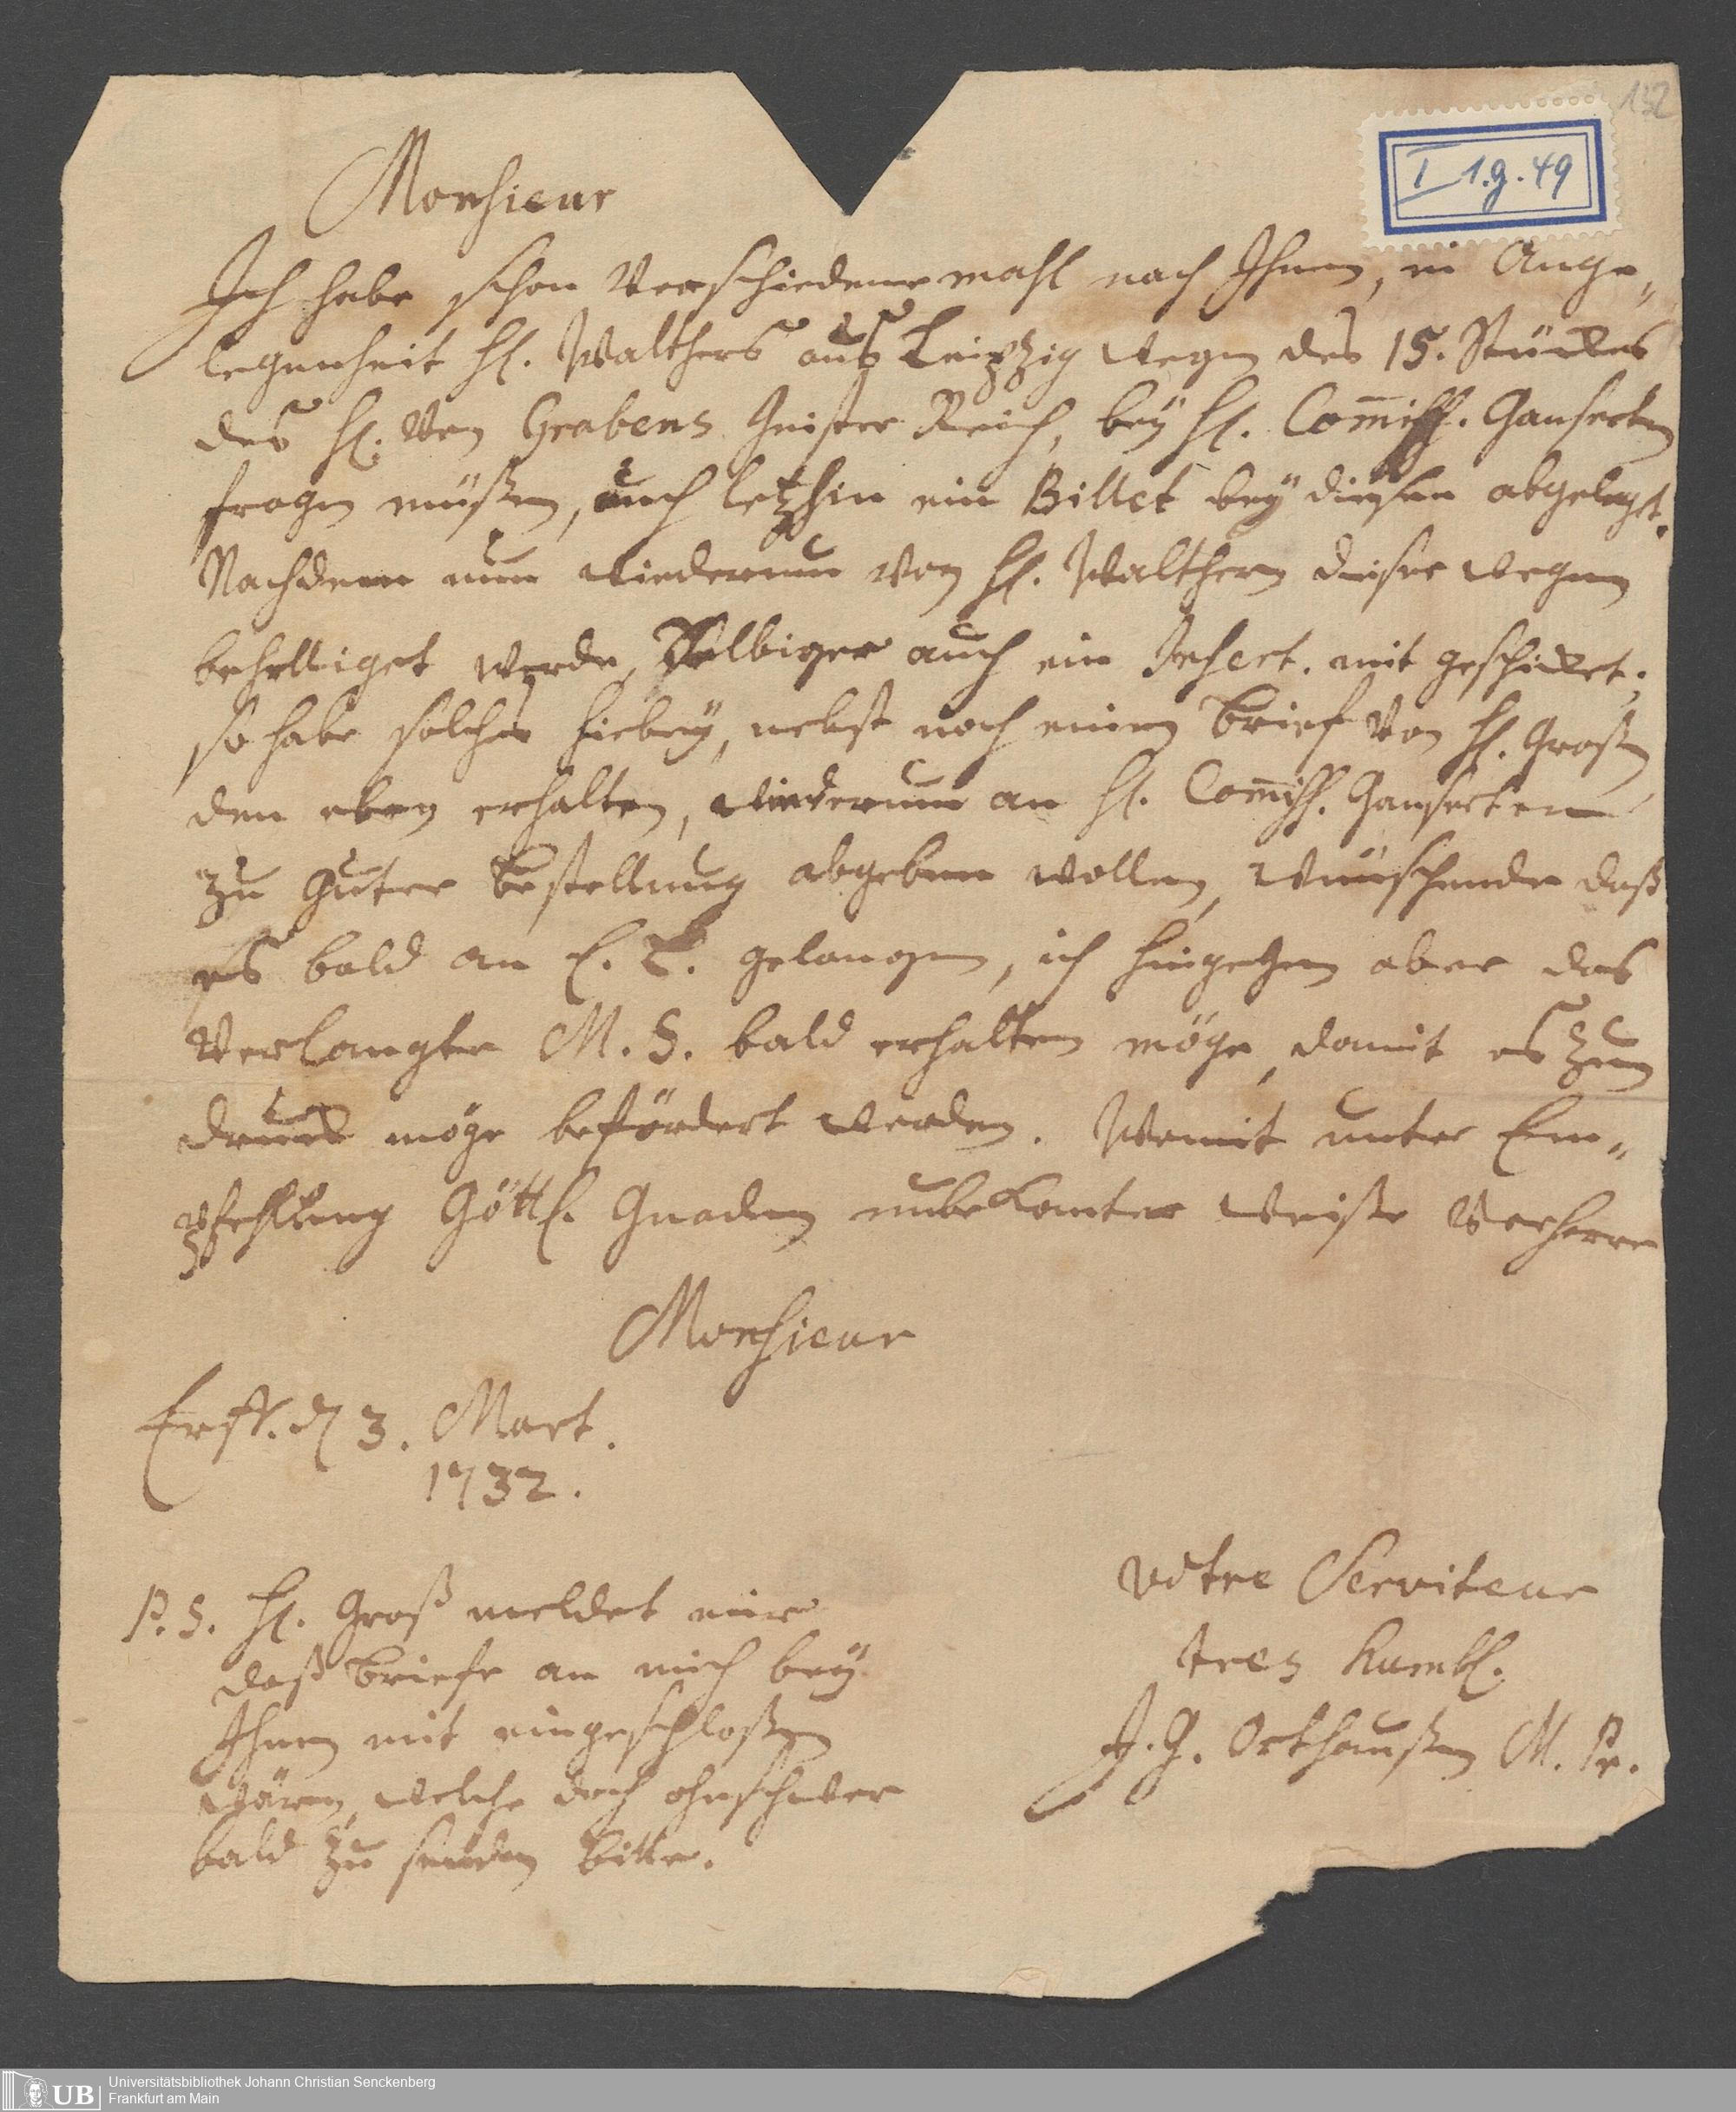 132
I 1.g.49
Monsieur
Ich habe schon verschiedene mahl nach Ihnen, in Ange„
legenheit H. Walthers aus Leipzig wegen des 15. Stückes
des H. von Grabens Geister Reich, bey H. Com̄iss. Ganserten
fragen müßen, auch letzhin ein Billet bey diesen abgeleget.
Nachdem nun wiederum von H. Walthern dieser wegen
behelliget werde, Selbiger auch ein Insert. mit geschicket;
so habe solches hiebey, nebst noch einem Brief von H. Großen
den eben erhalten, wiederum an H. Com̄iss. Ganserten
zu guter Bestellung abgeben wollen, wünschende daß
es bald an E. E. gelangen, ich hingegen aber das
verlangte M. S. bald erhalten möge, damit es zum
druck möge befördert werden. Womit unter Em„
pfehlung Göttl. Gnaden unbekanter weise verharre
Monsieur
Erff. d 3. Mart.
1732.
votre Serviteur
tres humbl.
J. G. Orthaußen M. Pr.
P. S. H. Groß meldet mir
daß Briefe an mich bey
Ihnen mit eingeschloßen
wären, welche doch ohnschwer
bald zu senden bitte.
UB
Universitätsbibliothek Johann Christian Senckenberg
Frankfurt am Main